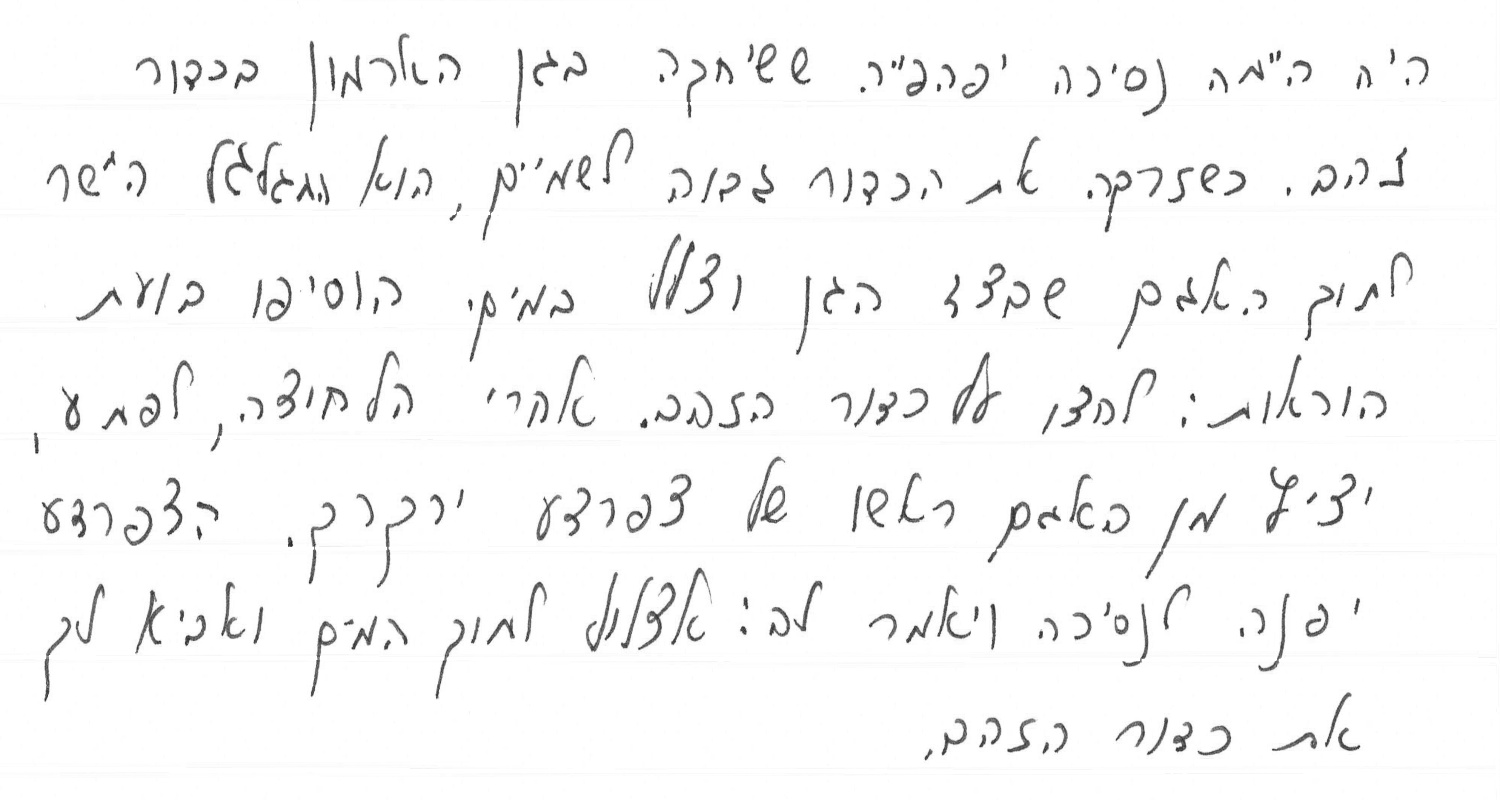 היה היתה נסיכה יפהפיה. ששיחקה בגן הארמון בכדור
זהב. כשזרקה. את הכדור גבוה לשמיים, הוא התגלגל הישר
לתוך האגם שבצד הגן וצלל במים. הוסיפו בועת
הוראות: לחצו על כדור הזהב. אחרי הלחיצה, לפתע,
יציץ מן האגם ראשו של צפרדע ירקרק. הצפרדע
יפנה. לנסיכה ויאמר לה: אצלול לתוך המים ואביא לך
את כדור הזהב.